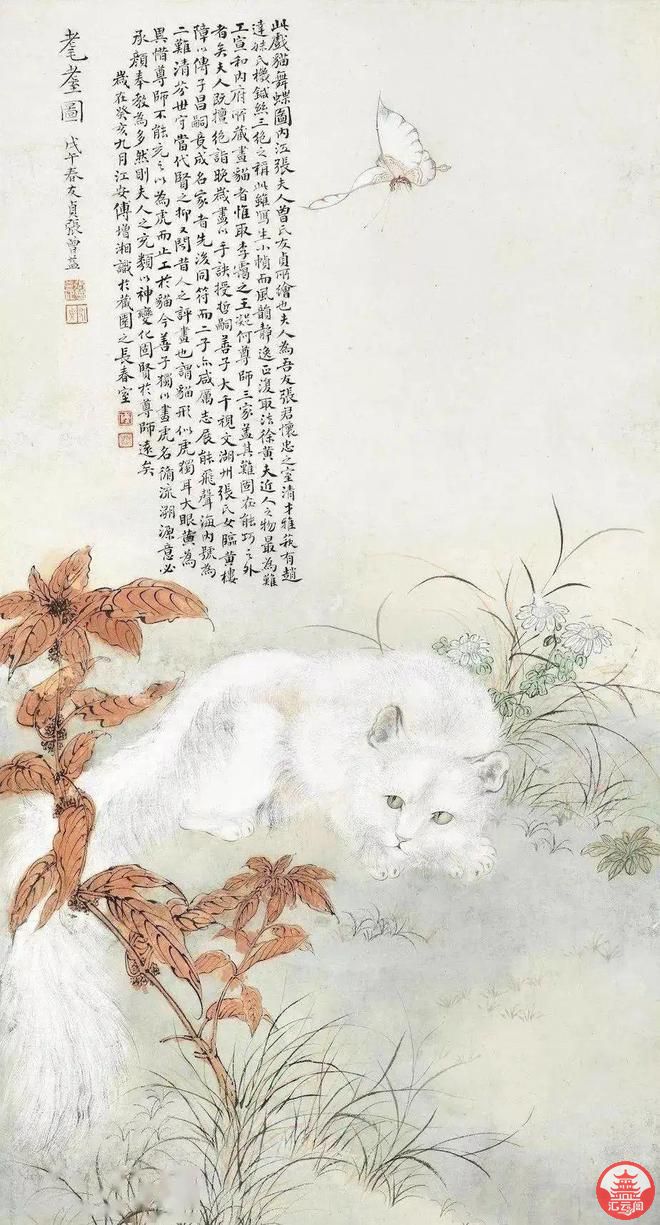 此戲貓舞蝶圖內江張夫人曾氏友貞所繪也夫人為吾友張君懷忠之室清才雅蓺有趙
達妹氏機鍼絲三絕之稱此雖寫生小幀而風韻靜逸正復取法徐黃夫近人之物最為難
工宣和內府所藏畫貓者惟取李靄之王凝何尊師三家蓋其難固在能巧之外
者矣夫人既擅絕詣晚歲畫以手訣授哲嗣善子大千視文湖州張氏女臨黃樓
障以傳子昌嗣竟成名家者先後同符而二子亦咸厲志展能飛聲海內號為
二難清芬世守當代賢之抑又聞昔人之評畫也謂貓形似虎獨耳大眼黃為
異惜尊師不能充之以為虎而止工於貓今善子獨以畫虎名循流溯源意必
承顏奉教為多然則夫人之充類以神變化固賢於尊師遠矣
歲在癸亥九月江安傅增湘識於藏園之長春室
耄耋圖
戊午春友貞張曾益
汇云阁